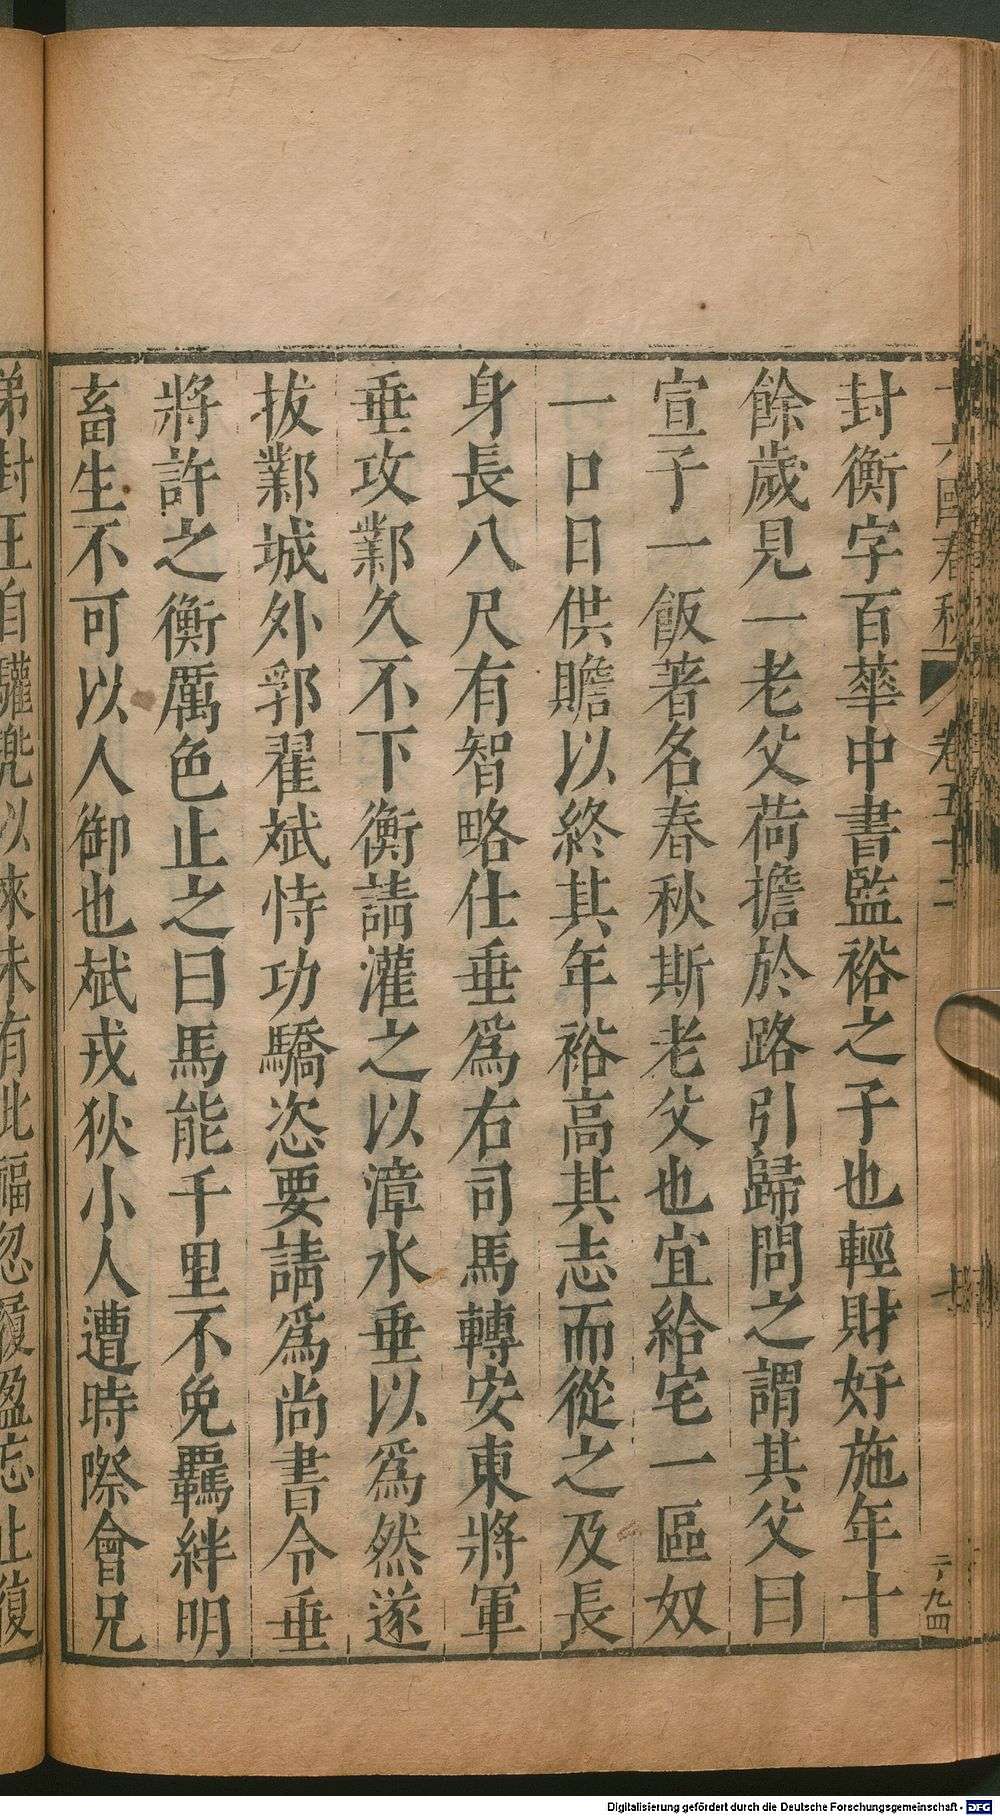 封衡字百華中書監裕之子也輕財好施年十
餘歲見一老父荷擔於路引歸問之謂其父曰
宣子一飯著名春秋斯老父也宜給宅一區奴
一口日供贍以終其年裕高其志而從之及長
身長八尺有智略仕垂爲右司馬轉安東將軍
垂攻鄴久不下衡請灌之以漳水垂以爲然遂
拔鄴城外郭翟斌恃功驕恣要請爲尚書令垂
將許之衡厲色止之曰馬能千里不免羈絆明
畜生不可以人御也斌戎狄小人遭時際會兄
弟封王自驩兜以來未有此福忽履盈忘止復
十六國春秋 卷五十二
二九四
Digitalisierung gefördert durch die Deutsche Forschungsgemeinschaft - DFG